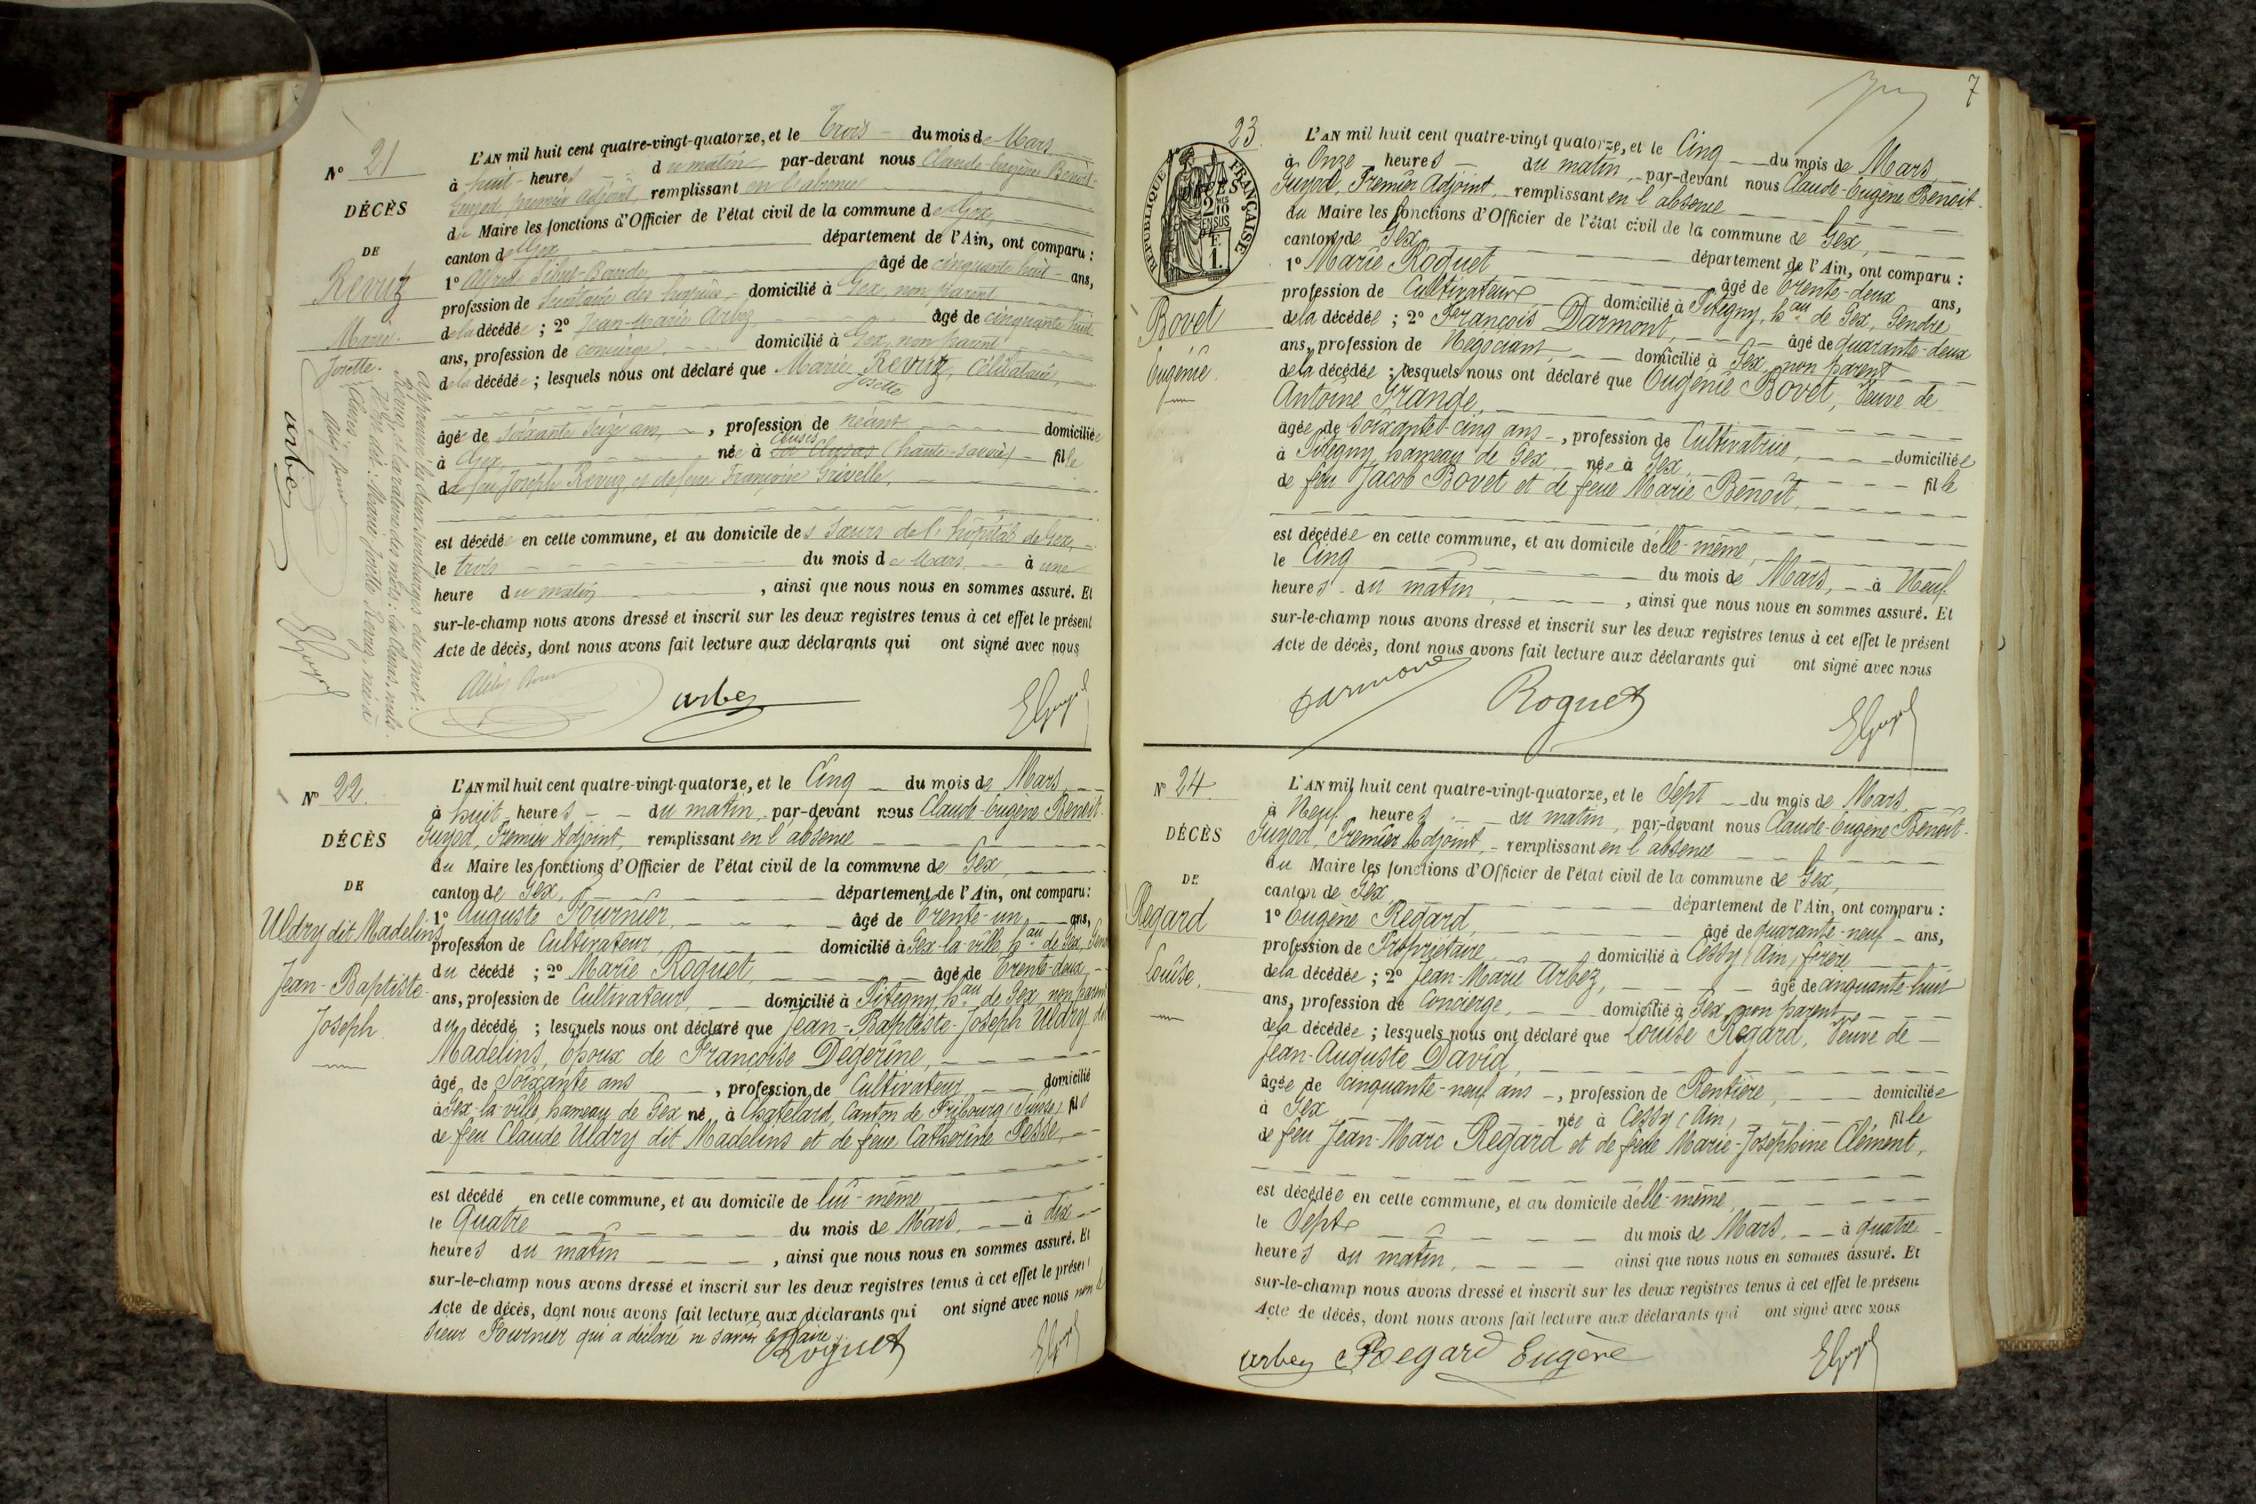 N° 21
DÉCÈS
DE
Revuz
Marie-
Josette.
L'AN mil huit cent quatre-vingt-quatorze, et le Trois du mois de Mars
à huit heures du matin par-devant nous Claude-Eugène Benoit-
Guyod, premier adjoint, remplissant en l'absence
du Maire les fonctions d'Officier de l'état civil de la commune de Gex,
canton de Gex département de l'Ain, ont comparu :
1° âgé de cinquante huit ans,
profession de Secrétaire des domicilié à Gex, non parent
de la décédée ; 2° Jean-Marie Arbez âgé de cinquante huit
ans, profession de concierge, domicilié à Gex, non parent
de la décédée ; lesquels nous ont déclaré que Marie Revuz, Célibataire,
Josette
âgée de soixante seize ans, profession de néant domiciliée
à Gex, née à Cluses (haute-Savoie) fille
de feu Joseph Revuz et de feue Françoise Grivelle,
est décédée en cette commune, et au domicile des Sœurs de l'hôpital de Gex,
le trois du mois de Mars, à une
heure du matin, ainsi que nous nous en sommes assuré. Et
sur-le-champ nous avons dressé et inscrit sur les deux registres tenus à cet effet le présent
Acte de décès, dont nous avons fait lecture aux déclarants qui ont signé avec nous
arbez
EGuyod
arbez
EGuyod
N° 22.
DÉCÈS
DE
Uldry dit Madelins
Jean-Baptiste-
Joseph
L'AN mil huit cent quatre-vingt-quatorze, et le Cinq du mois de Mars
à huit heures du matin, par-devant nous Claude-Eugène Benoit-
Guyod, Premier Adjoint, remplissant en l'absence
du Maire les fonctions d'Officier de l'état civil de la commune de Gex,
canton de Gex, département de l'Ain, ont comparu :
1° Auguste Fournier, âgé de trente-un ans,
profession de Cultivateur, domicilié à Gex-la-ville, hau de Gex, Gendre
du décédé ; 2° Marie Roquet, âgé de trente-deux
ans, profession de Cultivateur, domicilié à Pitegny, hau de Gex, non parent
du décédé ; lesquels nous ont déclaré que Jean-Baptiste-Joseph Uldry dit
Madelins, époux de Françoise Dégerine,
âgé de Soixante ans, profession de Cultivateur, domicilié
à Gex-la-ville, hameau de Gex né à Chatelard, Canton de Fribourg (Suisse) fils
de feu Claude Uldry dit Madelins et de feue Catherine Pesse,
est décédé en cette commune, et au domicile de lui-même,
le Quatre du mois de Mars, à dix
heures du matin, ainsi que nous nous en sommes assuré. Et
sur-le-champ nous avons dressé et inscrit sur les deux registres tenus à cet effet le présent
Acte de décès, dont nous avons fait lecture aux déclarants qui ont signé avec nous non le
sieur Fournier qui a déclaré ne savoir le faire.
Roguet
EGuyod
7
23.
RÉPUBLIQUE FRANÇAISE
Bovet
Eugénie.
L'AN mil huit cent quatre-vingt quatorze, et le Cinq du mois de Mars
à Onze heures du matin, par-devant nous Claude-Eugène Benoit-
Guyod, Premier Adjoint, remplissant en l'absence
du Maire les fonctions d'Officier de l'état civil de la commune de Gex,
canton de Gex département de l'Ain, ont comparu :
1° Marie Roquet âgé de trente-deux ans,
profession de Cultivateur domicilié à Pitegny, hau de Gex, Gendre
de la décédée ; 2° François Darmont, âgé de quarante-deux
ans, profession de Négociant, domicilié à Gex, non parent
de la décédée ; lesquels nous ont déclaré que Eugénie Bovet, Veuve de
Antoine Grange,
âgée de soixante-cinq ans, profession de Cultivatrice, domiciliée
à Pitegny, hameau de Gex née à Gex, fille
de feu Jacob Bovet et de feue Marie Benoit,
est décédée en cette commune, et au domicile d'elle-même,
le Cinq du mois de Mars, à Neuf
heures du matin, ainsi que nous nous en sommes assuré. Et
sur-le-champ nous avons dressé et inscrit sur les deux registres tenus à cet effet le présent
Acte de décès, dont nous avons fait lecture aux déclarants qui ont signé avec nous
Darmont
Roguet
EGuyod
N° 24.
DÉCÈS
DE
Regard
Louise.
L'AN mil huit cent quatre-vingt-quatorze, et le Sept du mois de Mars,
à Neuf heures du matin, par-devant nous Claude-Eugène Benoit-
Guyod, Premier Adjoint, remplissant en l'absence
du Maire les fonctions d'Officier de l'état civil de la commune de Gex,
canton de Gex département de l'Ain, ont comparu :
1° Eugène Regard, âgé de quarante-neuf ans,
profession de Propriétaire domicilié à Cessy (Ain) frère
de la décédée ; 2° Jean-Marie Arbez, âgé de cinquante-huit
ans, profession de Concierge, domicilié à Gex, non parent
de la décédée ; lesquels nous ont déclaré que Louise Regard, Veuve de
Jean-Auguste David,
âgée de cinquante-neuf ans, profession de Rentière, domiciliée
à Gex née à Cessy (Ain) fille
de feu Jean-Marc Regard et de feue Marie-Joséphine Clément,
est décédée en cette commune, et au domicile d'elle-même,
le Sept du mois de Mars, à quatre
heures du matin, ainsi que nous nous en sommes assuré. Et
sur-le-champ nous avons dressé et inscrit sur les deux registres tenus à cet effet le présent
Acte de décès, dont nous avons fait lecture aux déclarants qui ont signé avec nous
arbez Regard Eugène
EGuyod